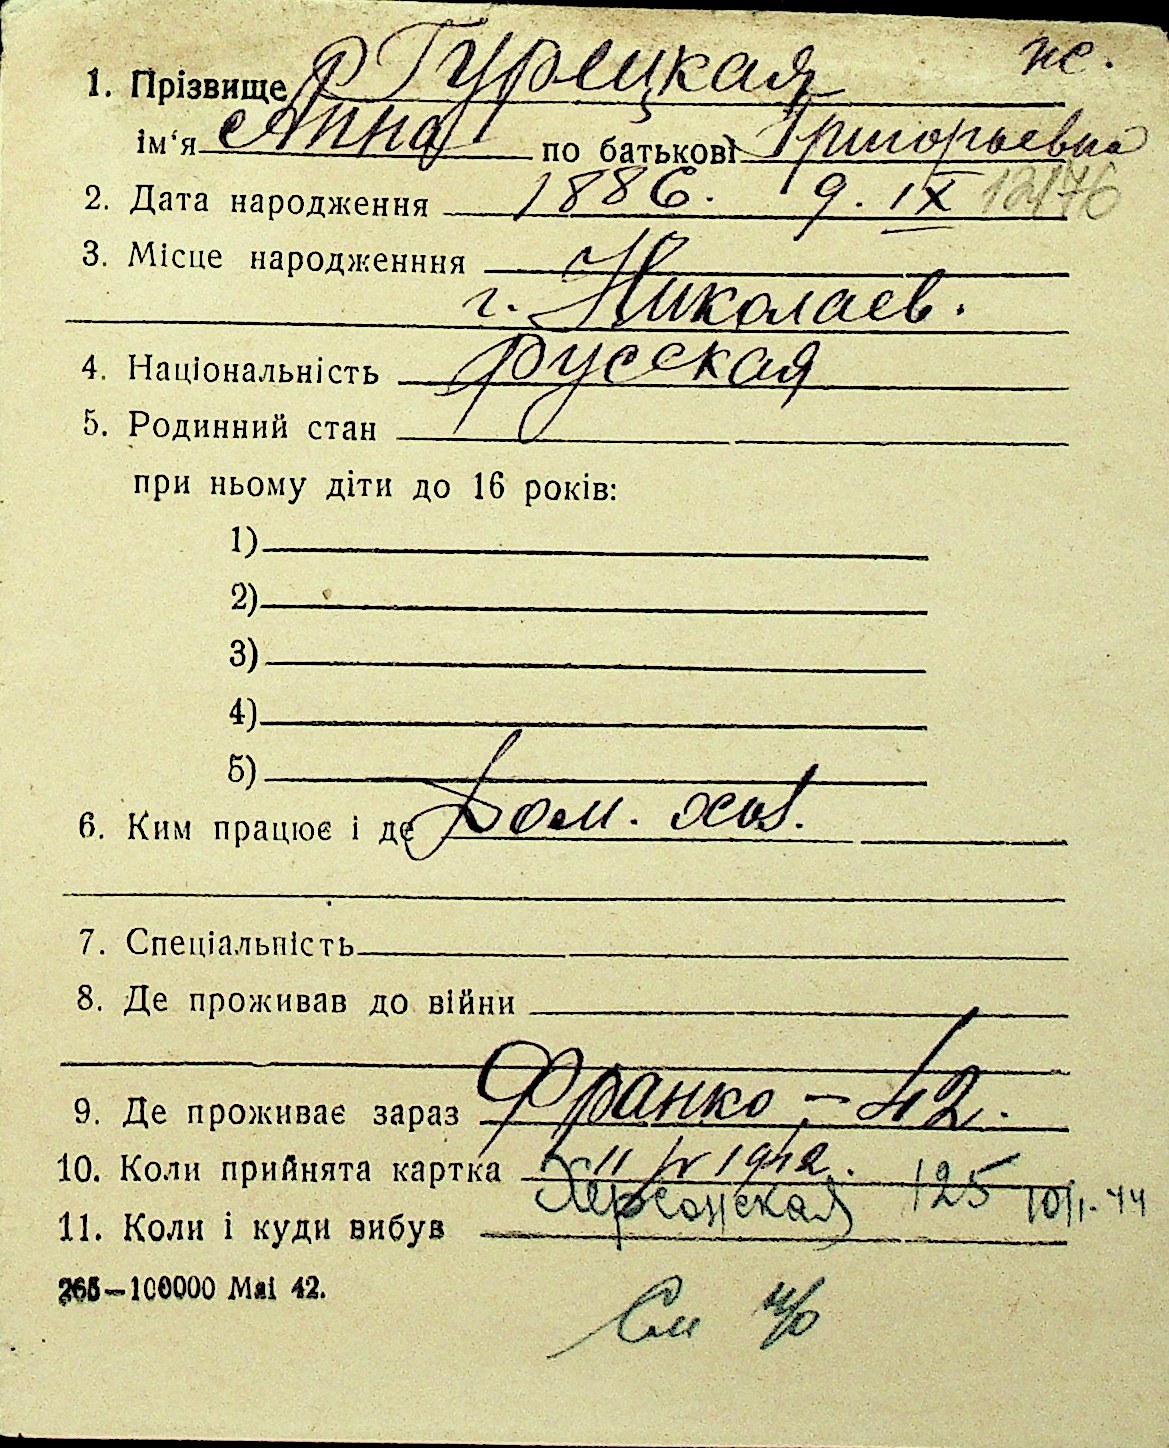 1. Прізвище Турецкая ж.
ім'я Анна по батькові Григорьевна
2. Дата народження 1886. 9. IX
3. Місце народженння
г. Николаев.
4. Національність русская
5. Родинний стан
при ньому діти до 16 років:
1)
2)
3)
4)
5)
6. Ким працює і де Дом. хоз.
7. Спеціальність
8. Де проживав до війни
9. Де проживає зараз Франко – 42.
10. Коли прийнята картка 1942.
Херсонская 125
11. Коли і куди вибув
265—100000 Маі 42.
См н/о